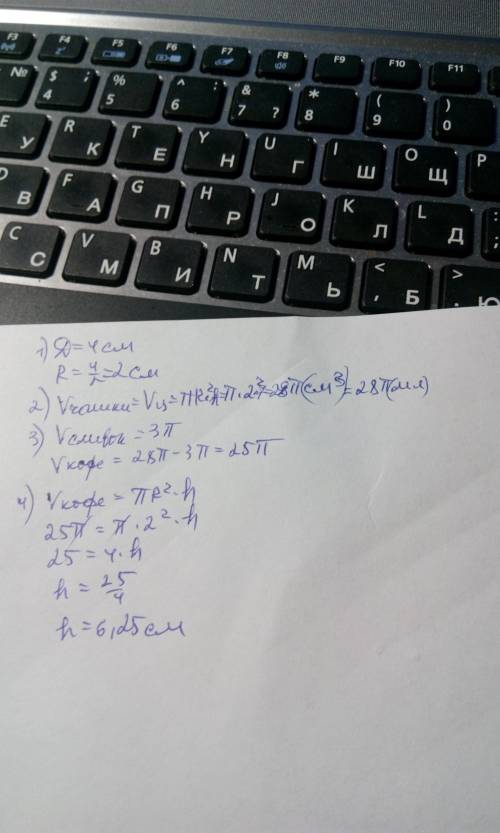 F3 F4 F5 F6 F7 F8 F9 F10 F11
№ $ ; 4 % 5 ^ : 6 & 7 ? * 8 ( 9 ) 0
E У R К T Е Y Н U Г I Ш O Щ P
D В F А G П H Р J О K Л L Д :
C С V М B И N Т M Ь < , Б > . Ю
1) D=4см
R=4/2=2см
2) Vчашки=Vц=πR²h=π·2²·7=28π(см³)=28π(мл)
3) Vсливок=3π
Vкофе=28π-3π=25π
4) Vкофе=πR²·h
25π=π·2²·h
25=4·h
h=25/4
h=6,25см